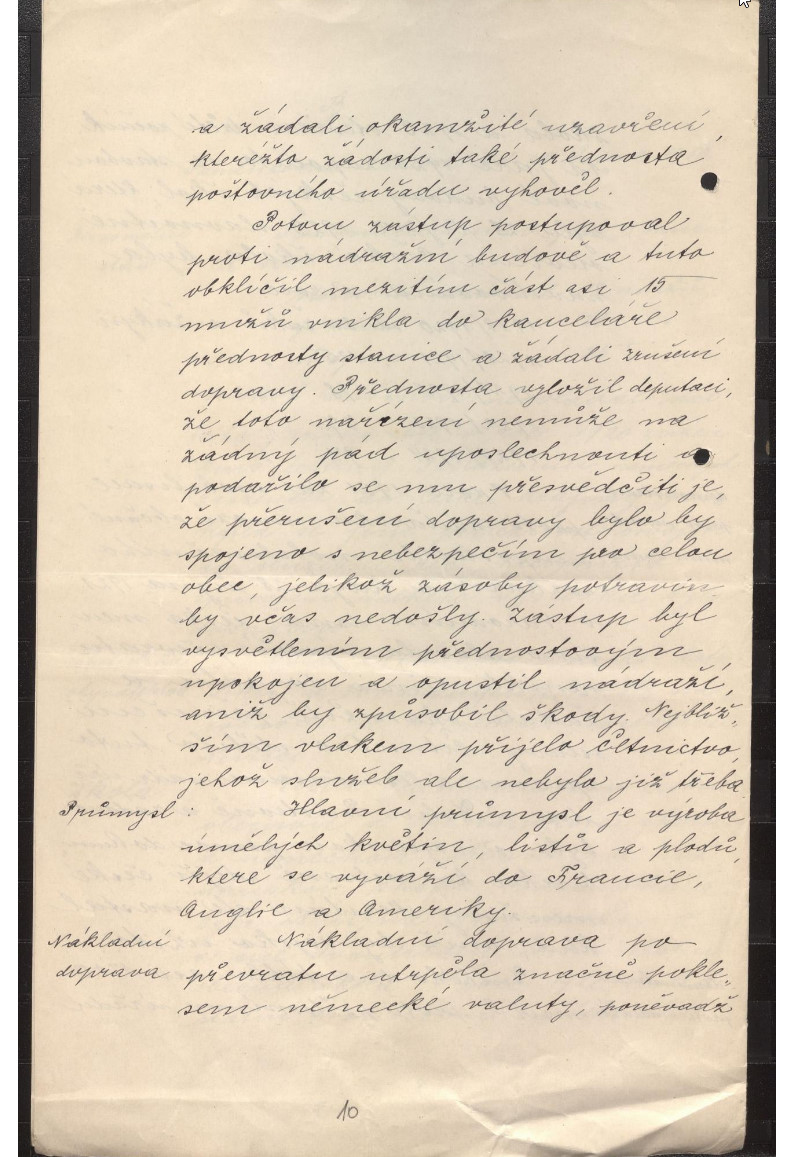 a žádali okamžité uzavření,
kteréžto žádosti také přednosta
poštovního úřadu vyhověl.
Potom zástup postupoval
proti nádražní budově a tuto
obklíčil mezitím část asi 15
mužů vnikla do kanceláře
přednosty stanice a žádali zrušení
dopravy. Přednosta vyložil deputaci,
že toto nařízení nemůže na
žádný pád uposlechnouti a
podařilo se mu přesvědčiti je,
že přerušení dopravy bylo by
spojeno s nebezpečím pro celou
obec, jelikož zásoby potravin
by včas nedošly. Zástup byl
vysvětlením přednostovým
upokojen a opustil nádraží,
aniž by způsobil škody. Nejbliž„
ším vlakem přijelo četnictvo,
jehož služeb ale nebylo již třeba
Průmysl : Hlavní průmysl je výroba
umělých květin, listů a plodů,
které se vyváží do Francie,
Anglie a Ameriky.
Nákladní Nákladní doprava po
doprava převratu utrpěla značně pokle„
sem německé valuty, poněvadž
10